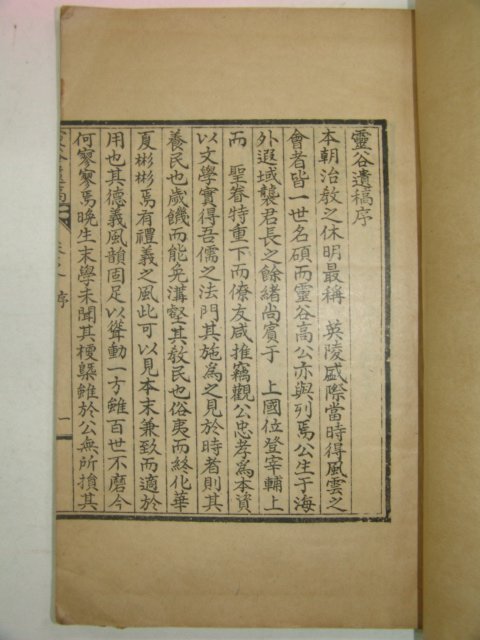 靈谷遺稿序
本朝治敎之休明最稱 英陵盛際當時得風雲之
會者皆一世名碩而靈谷高公亦與列焉公生于海
外遐域襲君長之餘緖尚賓于 上國位登宰輔上
而 聖眷特重下而僚友咸推竊觀公忠孝爲本資
以文學實得吾儒之法門其施爲之見於時者則其
養民也歲饑而能免溝壑其敎民也俗夷而終化華
夏彬彬焉有禮義之風此可以見本末兼致而適於
用也其德義風韻固足以聳動一方雖百世不磨今
何寥寥焉晚生末學未聞其梗槩雖於公無所損其
序
一